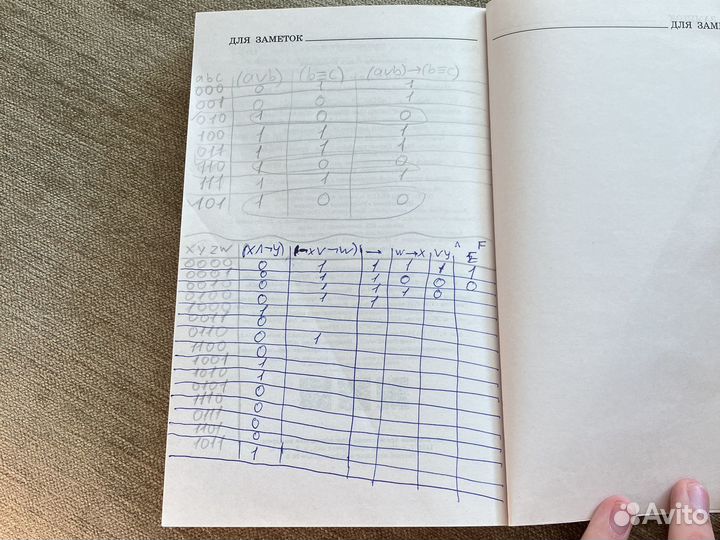 ДЛЯ ЗАМЕТОК
ДЛЯ ЗАМЕТ
abc (a∨b) (b≡c) (a∨b)→(b≡c)
000 0 1 1
001 0 0 1
010 1 0 0
100 1 1 1
011 1 1 1
110 1 0 0
111 1 1 1
101 1 0 0
xyzw (x∧¬y) (¬x∨¬w) → w→x ∨y ∧ F
0000 0 1 1 1 1 1
0001 0 1 1 0 0 0
0010 0 1 1 1 0
0100 0 1 1
1000 1
0011 0
0110 0 1
1100 0
1001 1
1010 1
0101 0
1110 0
0111 0
1101 0
1011 1
Avito